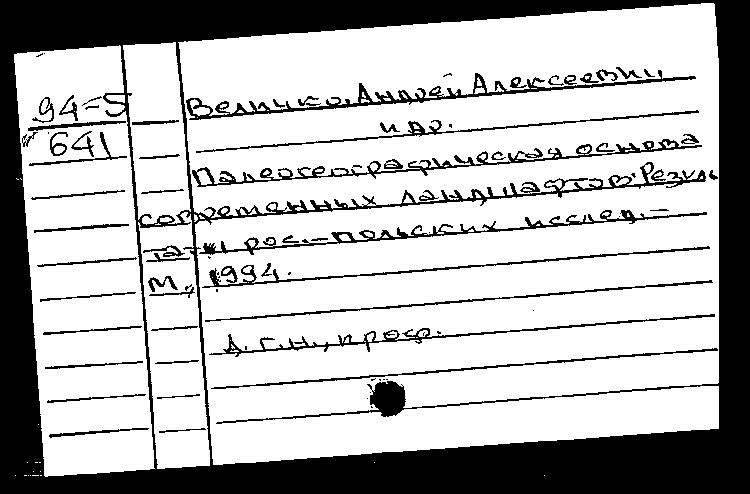 94-5
641
Величко, Андрей Алексеевич
и др.
Палеогеографическая основа
современных ландшафтов: Резуль
таты рос.-польских исслед.-
М., 1994.
д.г.н., проф.